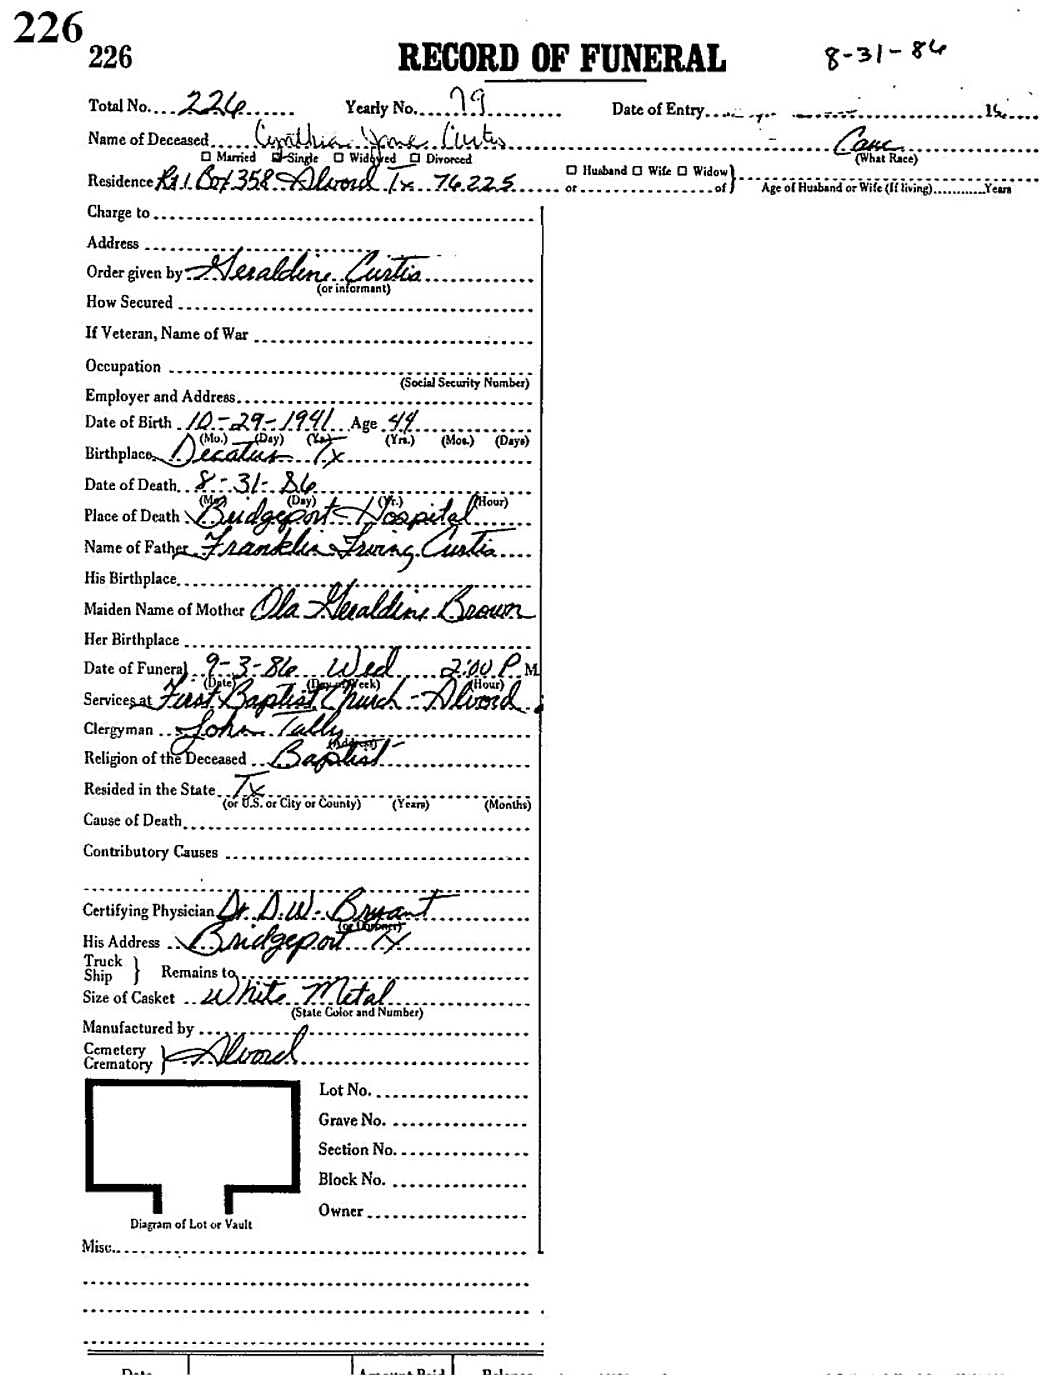 226
226 RECORD OF FUNERAL 8-31-86
Total No. 226 Yearly No. 79 Date of Entry
Name of Deceased Cynthia Jane Curtis Cauc
☐ Married ☑ Single ☐ Widowed ☐ Divorced (What Race)
Residence Rt 1 Box 358 Alvord Tx 76225 ☐ Husband ☐ Wife ☐ Widow }
or of Age of Husband or Wife (If living) Years
Charge to
Address
Order given by Geraldine Curtis
(or informant)
How Secured
If Veteran, Name of War
Occupation
(Social Security Number)
Employer and Address
Date of Birth 10-29-1941 Age 44
(Mo.) (Day) (Yr.) (Yrs.) (Mos.) (Days)
Birthplace Decatur Tx
Date of Death 8-31-86
(Mo.) (Day) (Yr.) (Hour)
Place of Death Bridgeport Hospital
Name of Father Franklin Irving Curtis
His Birthplace
Maiden Name of Mother Ola Geraldine Brown
Her Birthplace
Date of Funeral 9-3-86 Wed 2:00 P M
(Date) (Day of Week) (Hour)
Services at First Baptist Church - Alvord
Clergyman John Tally
(Address)
Religion of the Deceased Baptist
Resided in the State Tx
(or U.S. or City or County) (Years) (Months)
Cause of Death
Contributory Causes
Certifying Physician Dr. D.W. Bryant
(or Coroner)
His Address Bridgeport Tx
Truck
Ship } Remains to
Size of Casket White Metal
(State Color and Number)
Manufactured by
Cemetery
Crematory } Alvord
Lot No.
Grave No.
Section No.
Block No.
Owner
Diagram of Lot or Vault
Misc.
Date Amount Paid Balance